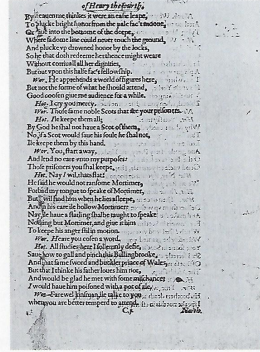 of Henry the fourth.
By heauen me thinkes it were an easie leape,
To plucke bright honor from the pale fac't moone,
Or diue into the bottome of the deepe,
Where fadome line could neuer touch the ground,
And plucke vp drowned honor by the locks,
So he that doth redeeme her thence might weare
Without corriuall all her dignities,
But out vpon this halfe fac't fellowship.
Wor. He apprehends a world of figures here,
But not the forme of what he should attend,
Good coosen giue me audience for a while.
Hot. I cry you mercy.
Wor. Those same noble Scots that are your prisoners.
Hot. Ile keepe them all;
By God he shal not haue a Scot of them,
No, if a Scot would saue his soule he shal not,
Ile keepe them by this hand.
Wor. You start away,
And lend no eare vnto my purposes:
Those prisoners you shal keepe.
Hot. Nay I wil, thats flat:
He said he would not ransome Mortimer,
Forbid my tongue to speake of Mortimer,
But I wil find him when he lies asleepe,
And in his eare ile hollow Mortimer:
Nay ile haue a starling shal be taught to speake
Nothing but Mortimer, and giue it him
To keepe his anger stil in motion.
Wor. Heare you cosen a word.
Hot. All studies here I solemnly defie,
Saue how to gall and pinch this Bullingbrooke,
And that same sword and buckler prince of Wales,
But that I thinke his father loues him not,
And would be glad he met with some mischance
I would haue him poisoned with a pot of ale,
Wor. Farewel kinsman, ile talke to you
when you are better temperd to attend.
C.j. North.